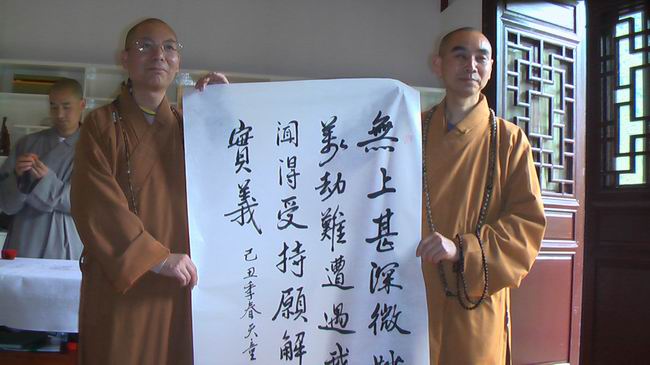 無上甚深微妙
萬劫難遭遇我
聞得受持願解
實義
己丑季春天童